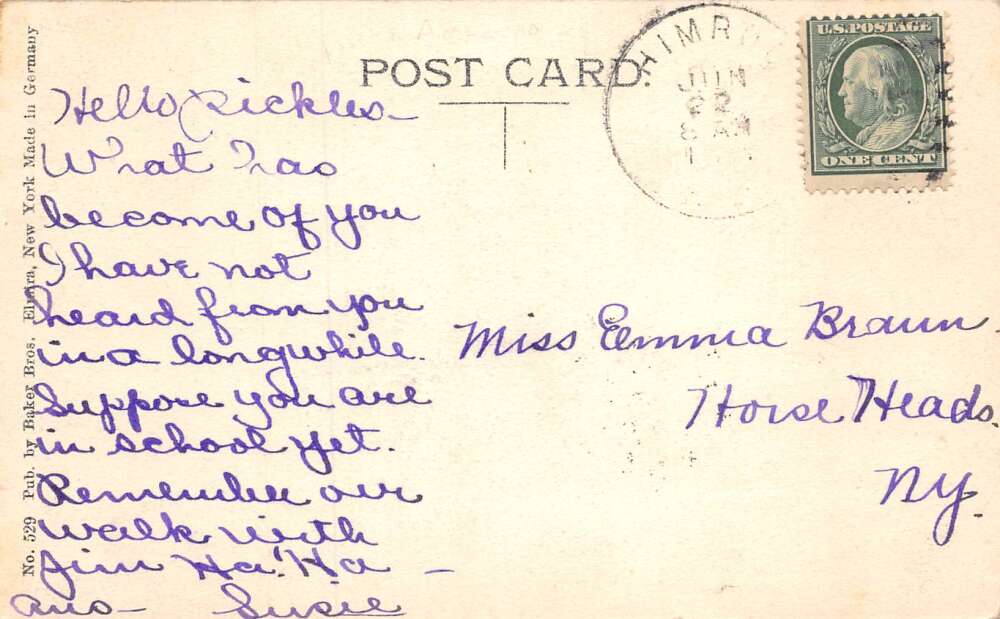 POST CARD.
HIMRO
JUN
22
8 AM
U.S. POSTAGE
ONE CENT
Hello Pickles-
What has
become of you
I have not
heard from you
in a longwhile.
Suppose you are
in school yet.
Remember our
walk with
Jim Ha! Ha -
ans- Susie
Miss Emma Braun
Horse Heads.
NY.
No. 529 Pub. by Baker Bros. Elmira, New York Made in Germany